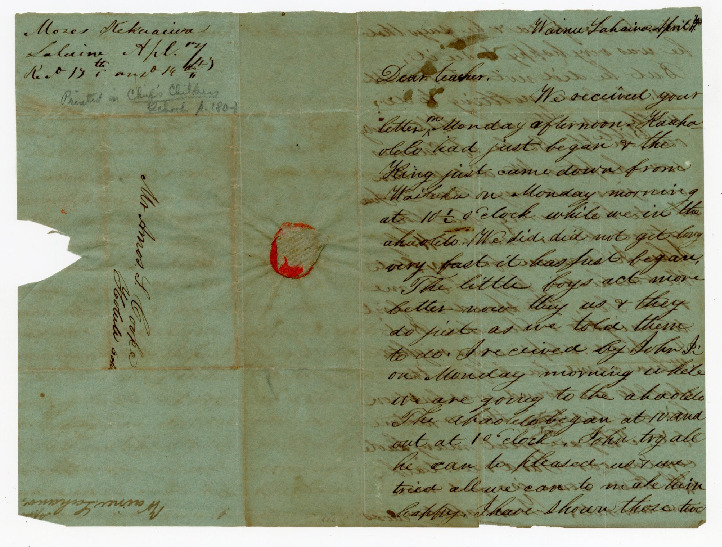 Moses Kekuaiwa
Lahaina Apl. 17
/47
Rec'd 17th ansd 18th
Printed in Chiefs' Children's
School p. 180-1
Mr Amos S. Cooke
Honolulu
Wainee Lahaina
Wainee Lahaina April
Dear teacher.
We received your
letter on Monday afternoon. Kaaha
olelo had just began & the
King just came down from
Wailuku on Monday morning
at 10½ o'clock while we in the
ahaolelo. We did did not get
very fast it has just began,
The little boys act more
better now they us & they
do just as we told them
to do. I received by John Ii
on Monday morning while
we are going to the ahaolelo
The ahaolelo began at 10 and
out at 1 o'clock. John try all
he can to pleased us & we
tried all we can to make him
happy. I have shown those two